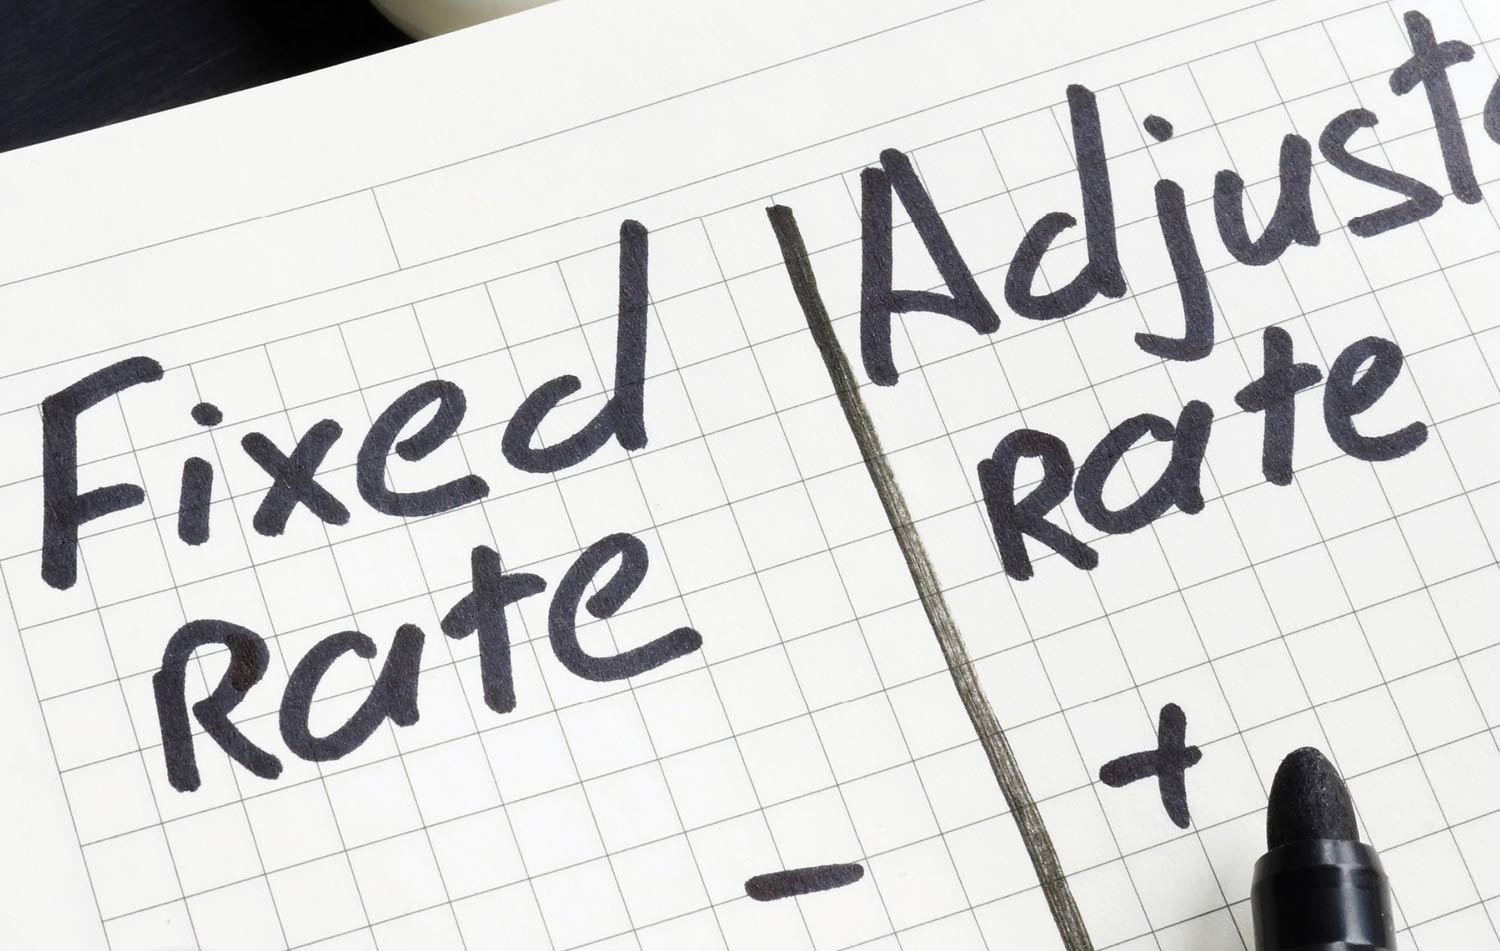 Fixed
Rate
-
Adjust
Rate
+